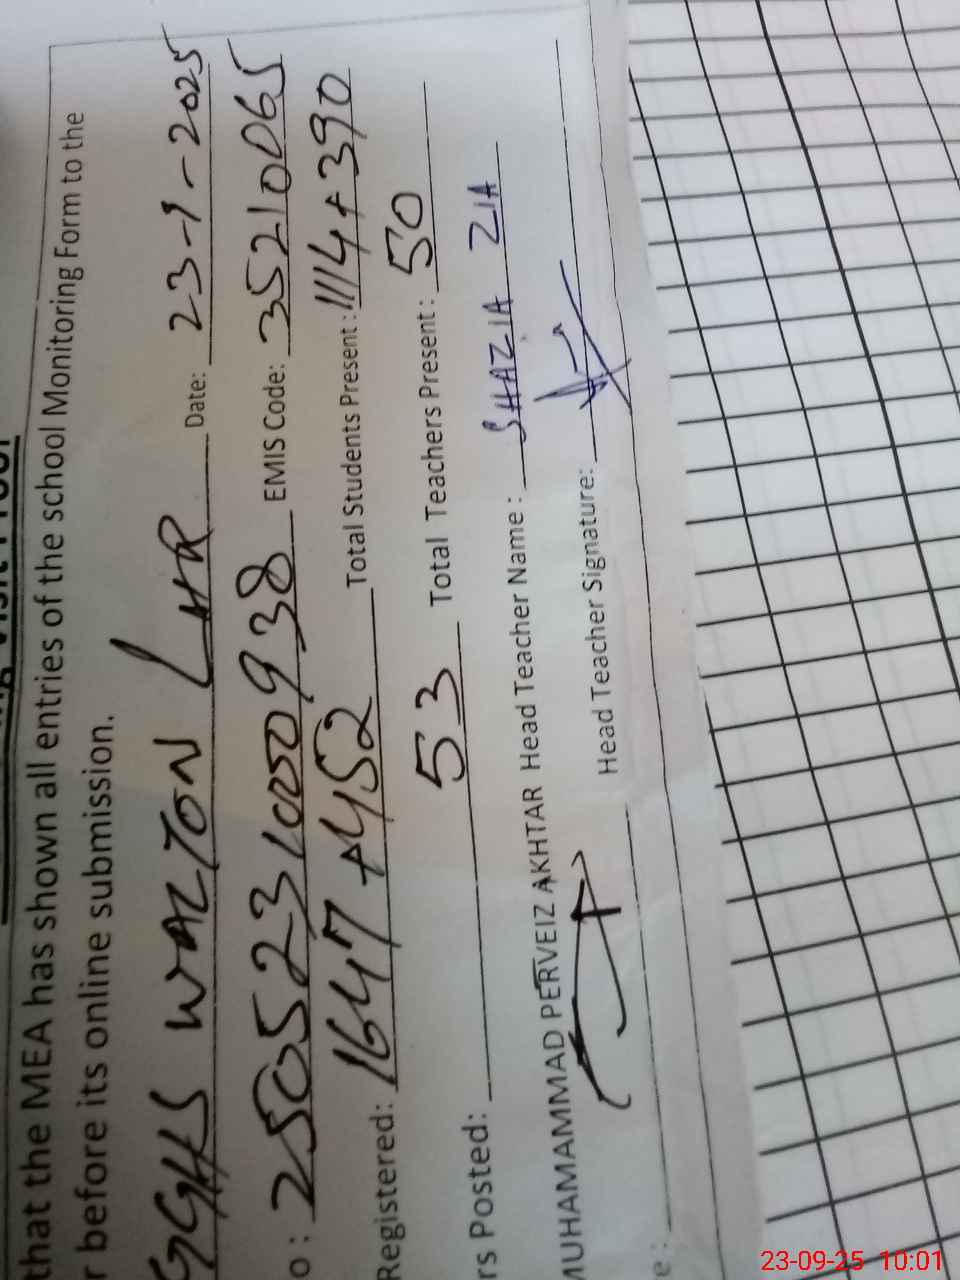 that the MEA has shown all entries of the school Monitoring Form to the
r before its online submission.
GGHS WALTON LHR Date: 23-9-2025
o : 25052310050938 EMIS Code: 35210065
Registered: 1647 + 452 Total Students Present : 1114 + 390
rs Posted: 53 Total Teachers Present : 50
MUHAMAMMAD PERVEIZ AKHTAR Head Teacher Name : SHAZIA ZIA
e : Head Teacher Signature:
23-09-25 10:01